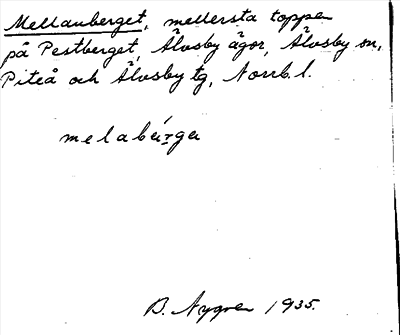 Mellanberget, mellersta toppen
på Pestberget, Älvsby ägor, Älvsby sn,
Piteå och Älvsby tg, Norrb. l.
melabärga
B. Nygren 1935.